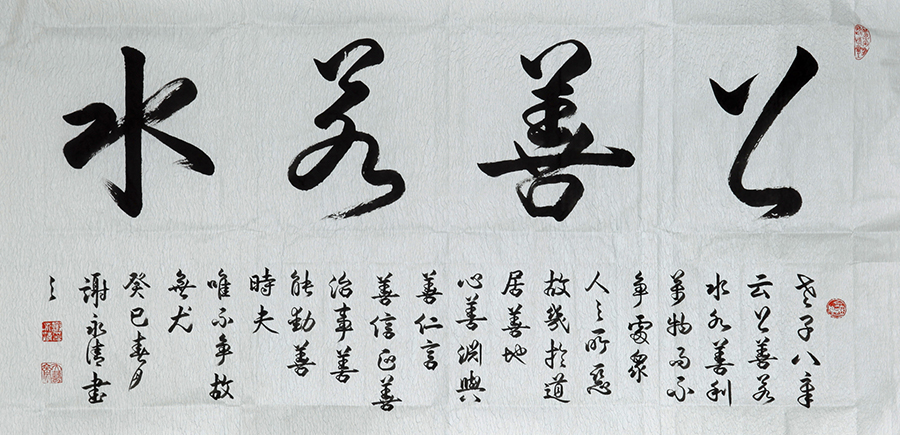 上善若水
老子八章
云上善若
水水善利
萬物而不
爭處衆
人之所惡
故幾於道
居善地
心善淵與
善仁言
善信正善
治事善
能動善
時夫
唯不爭故
無尤
癸巳春月
謝永清書